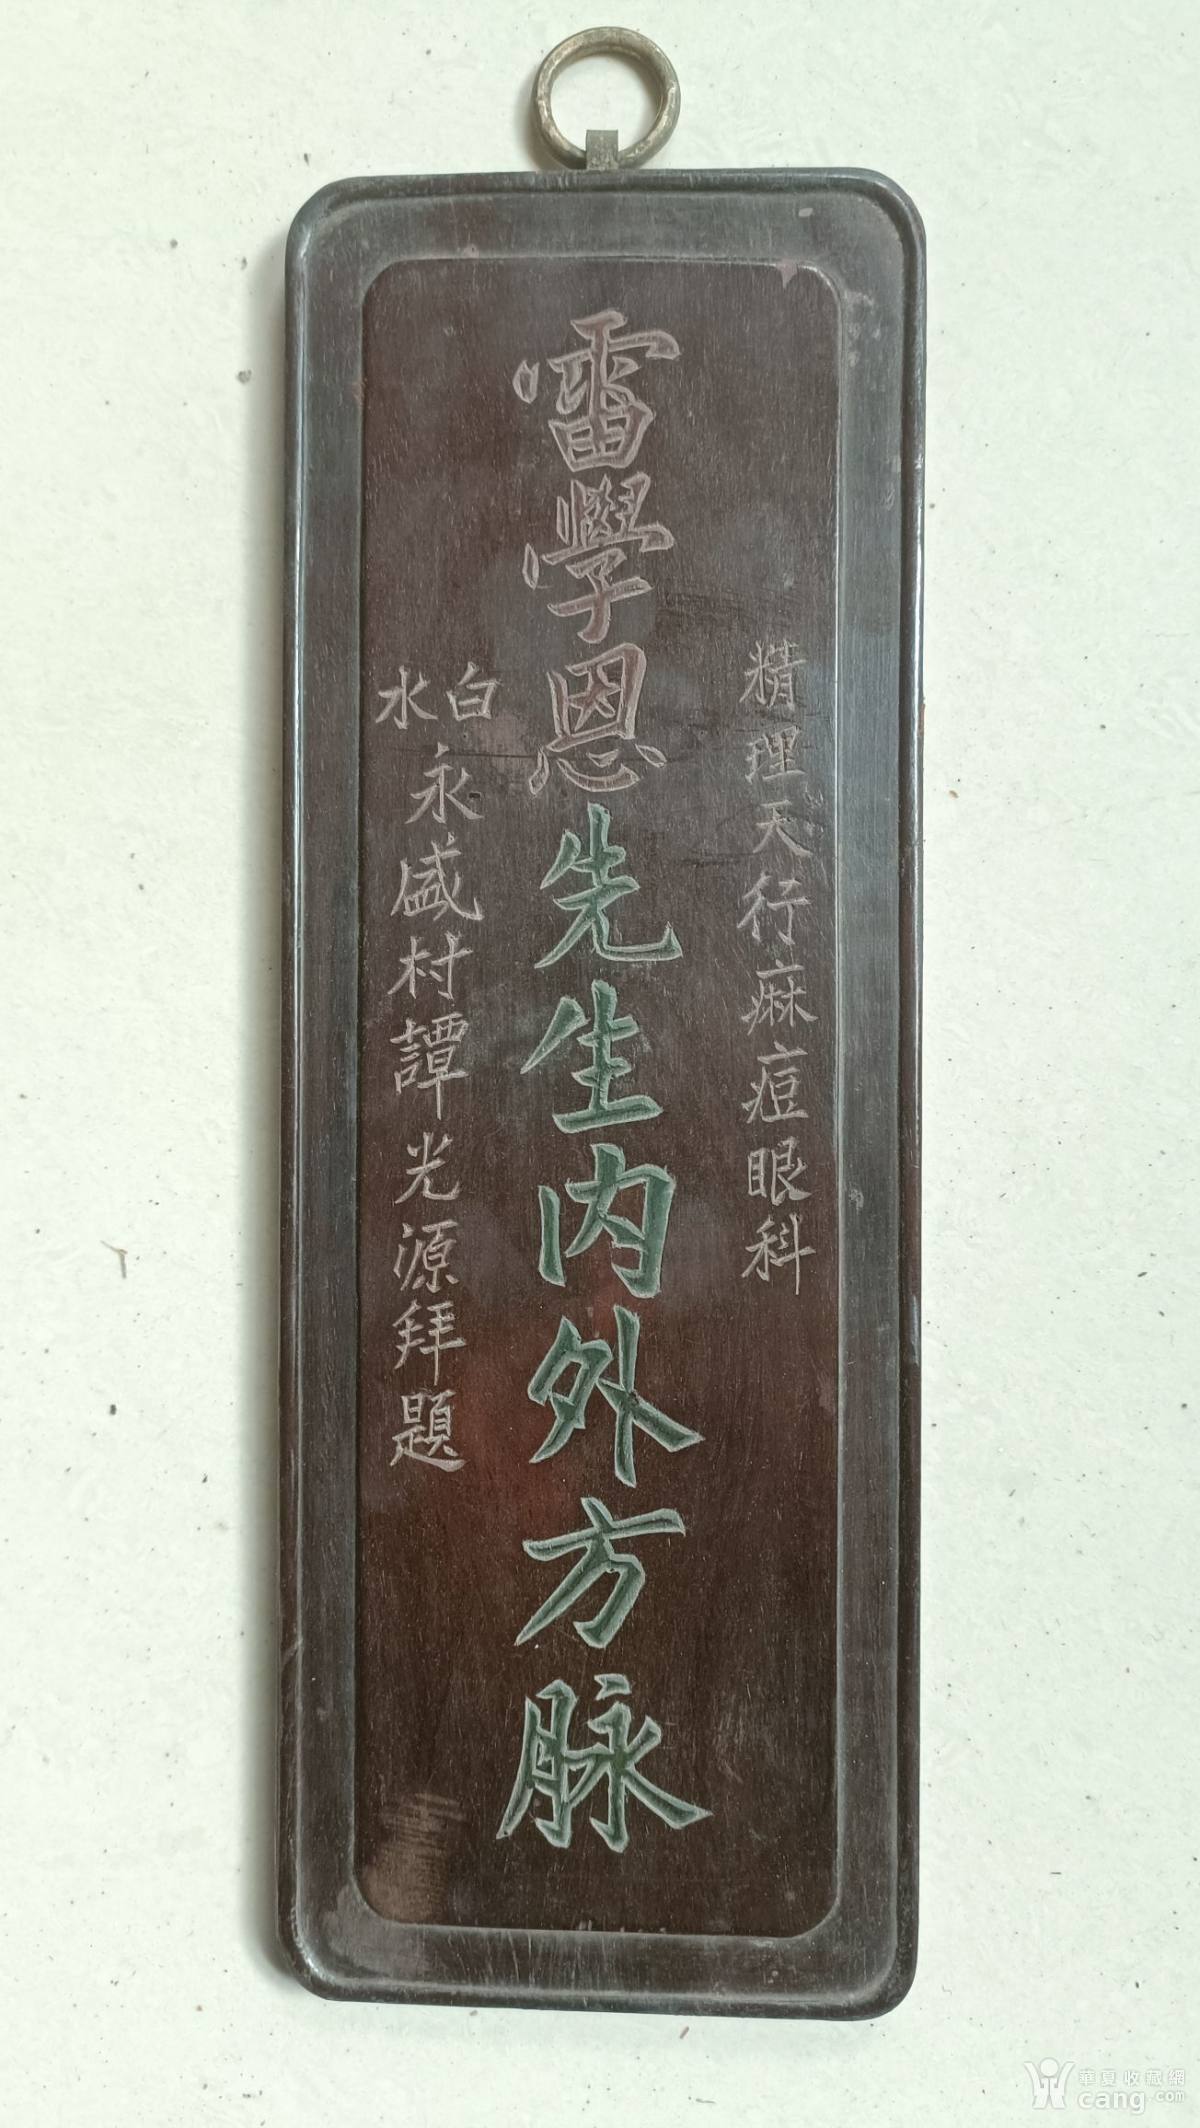 精理天行痳痘眼科
雷學恩先生內外方脉
白水
永盛村譚光源拜題
華夏收藏網
cang.com